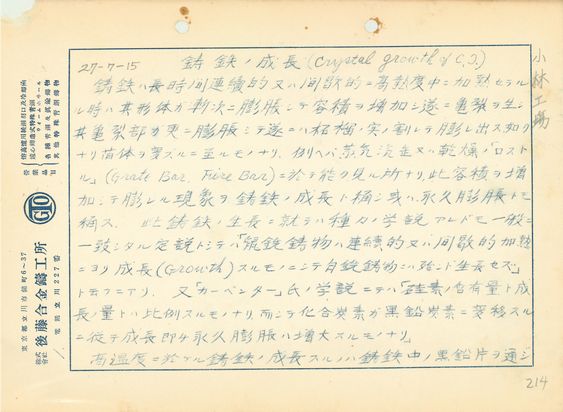 27-7-15 鋳鉄ノ成長 (Crystal growth of C.I.)
鋳鉄ハ長時間連續的又ハ间歇的ニ高熱度中ニ加熱セラル
ル時ハ其形体ガ漸次ニ膨脹シテ容積ヲ増加シ遂ニ亀裂ヲ生シ
其亀裂部カ更ニ膨脹シテ遂ニハ柘榴ノ実ノ割レテ膨レ出ス如ク
ナリ
例ヘバ蒸気汽缶又ハ乾燥「ロスト
ル」(Grate Bar, Fire Bar)ニ於テ能ク見ル所ナリ此容積ヲ増
加シテ膨レル現象ヲ鋳鉄ノ成長ト稱シ或ハ永久膨脹トモ
稱ス. 此鋳鉄ノ生長ニ就テハ種々ノ学説アレドモ一般ニ
一致シタル定説トシテハ「鼠銑鋳物ハ連續的又ハ间歇的加熱
ニヨリ成長(Growth)スルモノニシテ白銑鋳物ハ殆ンド生長セズ」
ト云フニアリ 又「カーペンター」氏ノ学説ニテハ「硅素ノ含有量ト成
長ノ量トハ比例スルモノナリ而シテ化合炭素ガ黒鉛炭素ニ変移スル
ニ従テ成長即チ永久膨脹ハ増大スルモノナリ」
高温度ニ於ケル鋳鉄ノ成長スルノハ鋳鉄中ノ黒鉛片ヲ通ジ
小林工場
214
營業品目
各種特許及試驗鑄物
其他特殊青銅鑄物
GTO
株式會社 後藤合金鑄工所
東京都立川市錦町6~37
電話立川227番